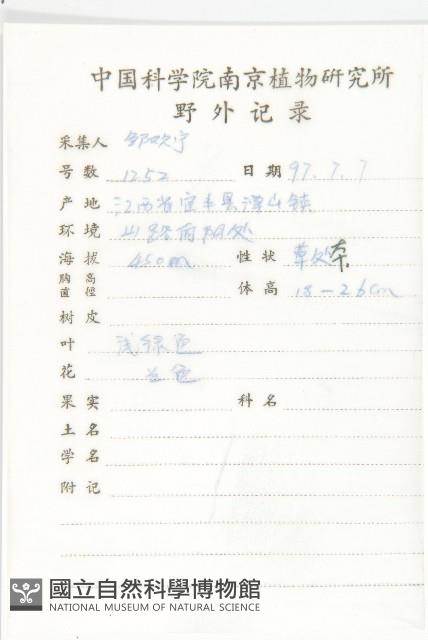 中国科学院南京植物研究所
野外记录
采集人
号数 1252 日期 97.7.7
产地 江西省宜丰县潭山镇
环境 山路旁阴处
海拔 450m 性状 草本
胸高直径 体高 18-26cm
树皮
叶 浅绿色
花 白色
果实 科名
土名
学名
附记
國立自然科學博物館
NATIONAL MUSEUM OF NATURAL SCIENCE